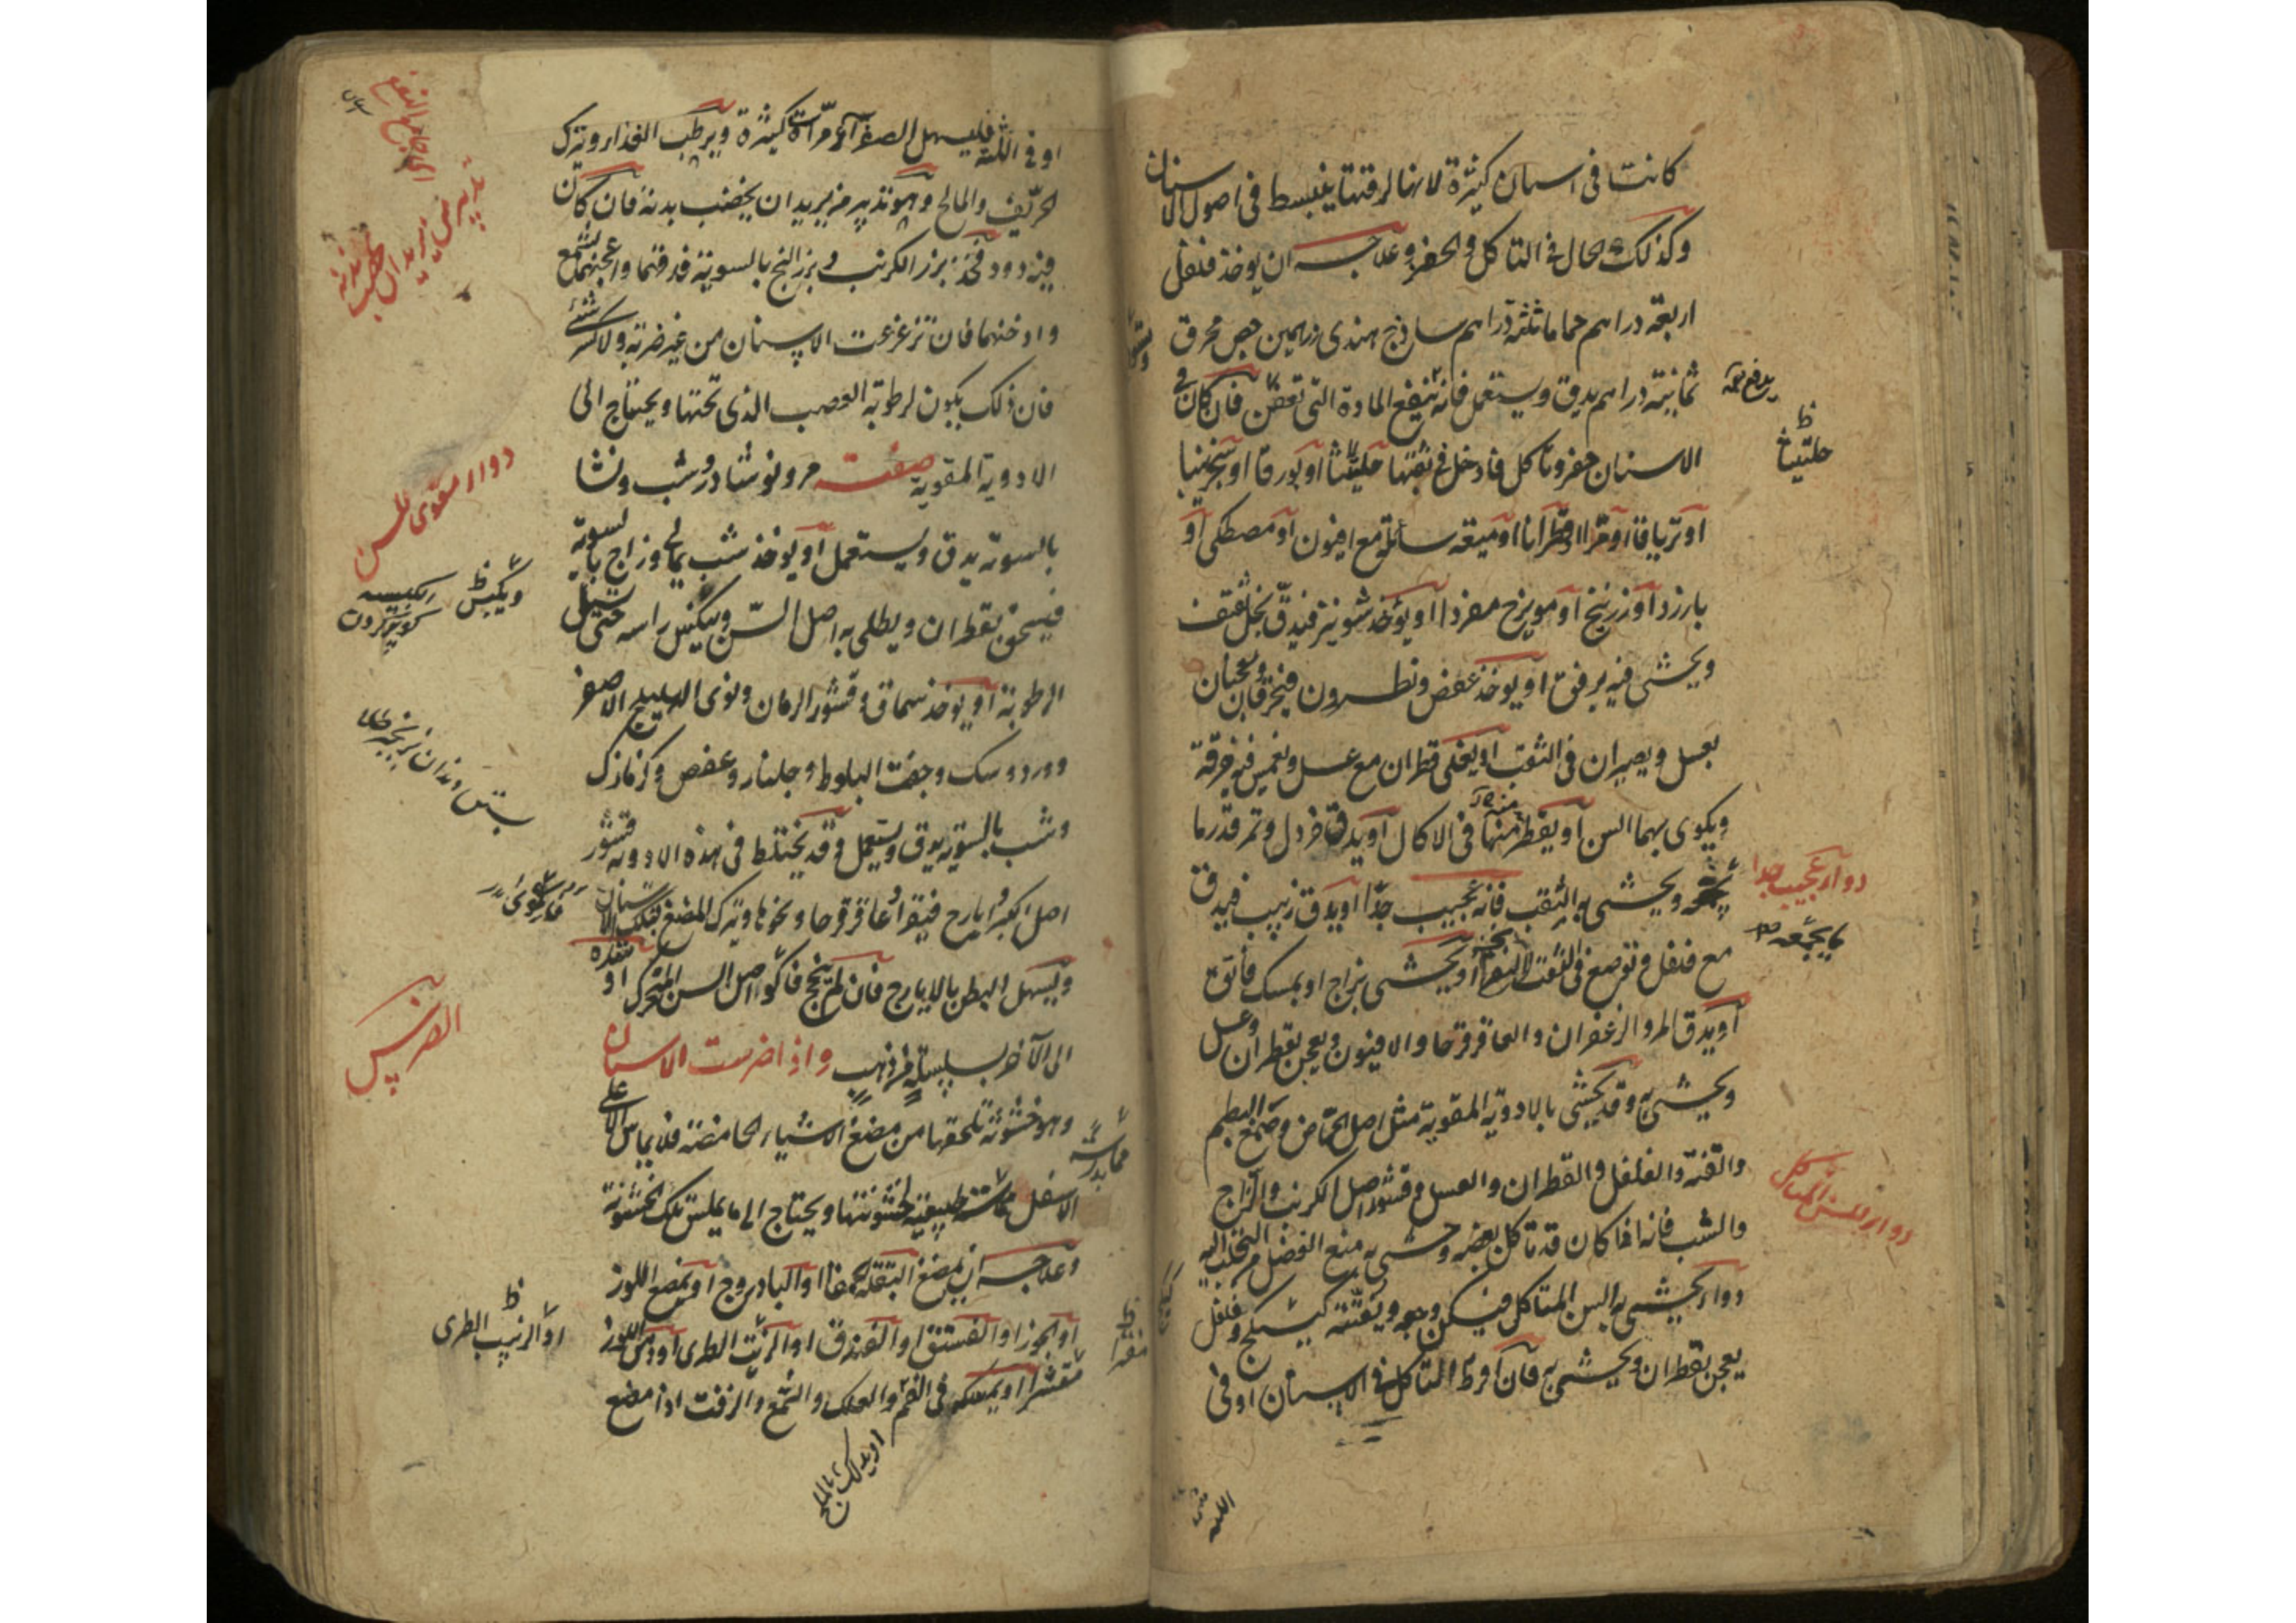 كانت في اسنان كثيرة لانها لرقتها ينبسط في اصول الاسنان
وكذلك الحال في التاكل والحفر وعلاجه ان يوخذ فلفل
اربعة دراهم حماما ثلثة دراهم ساذج هندي درهمين جص محرق
ثمانية دراهم يدق ويستعمل فانه ينفع المادة التي تعفن فان كان في
الاسنان حفر وتاكل فادخل في ثقبها حلتيثا او بورقا او سنجرنيا
او ترياقا او مرا او قطرانا او ميعة سائلة مع افيون او مصطكى او
بارزد او زرنيخ او مويزج مفردا او يوخذ شونيز فيدق بخل ثقيف
ويحشى فيه برفق او يوخذ عفص ونطرون فيحرقان ويعجنان
بعسل ويصيران في الثقب او يغلى قطران مع عسل ويغمس فيه خرقة
ويكوى بهما السن او يقطر منها في الاكال او يدق خردل وتمر قدر ما
ويحشى به الثقب فانه عجيب جدا او يدق زبيب فيدق
مع فلفل وتوضع في الثقب او يحشى بزاج او بمسك فائق
او يدق المر والزعفران والعاقرقرحا والافيون ويعجن بقطران وعسل
ويحشى به وقد يحشى بالادوية المقوية مثل اصل الحماض وصمغ البطم
والقنة والفلفل والقطران والعسل وقشور اصل الكرنب والزاج
والشب فانه اذا كان قد تاكل بعضه وحشى به منع الفضل من التحلب اليه
دواء يحشى به السن المتاكل فيسكن وجعه ويفتته كبيكج وفلفل
يعجن بقطران ويحشى به فان افرط التاكل في الاسنان او في
حلتيثا
دواء عجيب جدا
دواء للسن المتاكل
اللثة
او في اللثة فليسهل الصفراء مرات كثيرة ويرطب الغذاء ويترك
الحريف والمالح وهو تدبير من يريد ان يخصب بدنه فان كان
فيه دود فخذ بزر الكرنب وبزر البنج بالسوية فدقهما واعجنهما بشمع
وادخنهما فان تزعزعت الاسنان من غير ضربة ولا كسر شئ
فان ذلك يكون لرطوبة العصب الذي تحتها ويحتاج الى
الادوية المقوية صفته مر ونوشادر وشب ونشا
بالسوية يدق ويستعمل او يوخذ شب يماني وزاج بالسوية
فيسحق بقطران ويطلى به اصل السن وينكس راسه حتى تسيل
الرطوبة او يوخذ سماق وقشور الرمان ونوى الهليلج الاصفر
وورد وسك وجفت البلوط وجلنار وعفص وكزمازك
وشب بالسوية يدق ويستعمل وقد يختلط في هذه الادوية قشور
اصل الكبر وايارج فيقرا وعاقرقرحا ونحوها وترك المضغ بتلك الاسنان
ويسهل البطن بالايارج فان لم ينجح فاكو اصل السن المتحرك او شده
الى الآخر بسلسلة من ذهب واذا ضرست الاسنان
وهو خشونة تلحقها من مضغ الاشياء الحامضة فلا يماس الاعلى
الاسفل مماسة طبيعية لخشونتها ويحتاج الى ما يملس تلك الخشونة
وعلاجه ان يمضغ البقلة الحمقا او البادروج او يمضغ اللوز
او الجوز او الفستق او الفندق او الزيت الطري او دهن اللوز
مقشرا او يمسكه في الفم والعلك والشمع والزفت اذا مضغ
تدبير من يريد ان يخصب بدنه
دواء مقوي للسن
الضرس
او الزبيب الطري
او يدلك بالملح